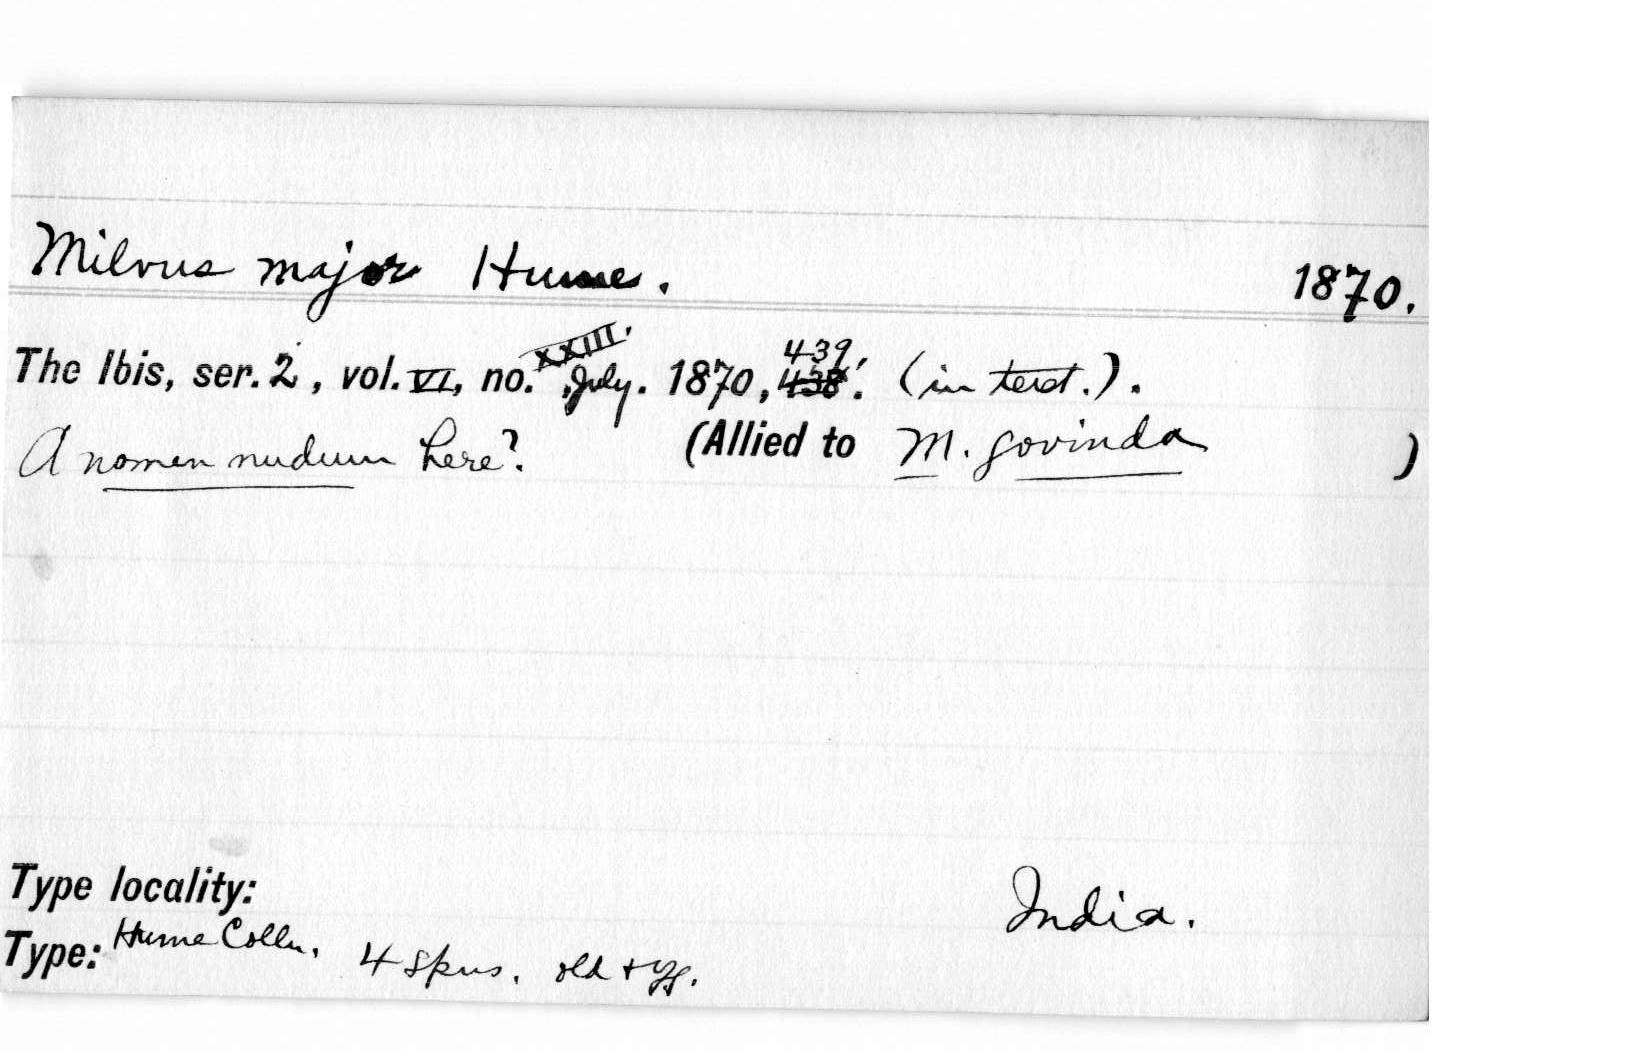 Milvus major Hume. 1870.
The Ibis, ser. 2, vol. VI, no. XXIII, July. 1870, 439. (in text.).
A nomen nudum here? (Allied to M. govinda )
Type locality: India.
Type: Hume Colln. 4 spns. old + yg.